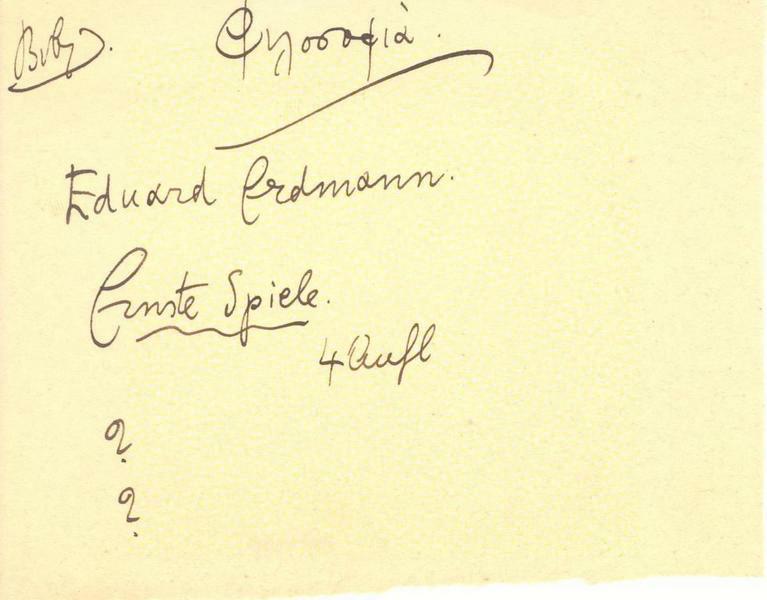 Bibl. Φιλοσοφιὰ.
Eduard Erdmann.
Ernste Spiele.
4 Aufl
?
?